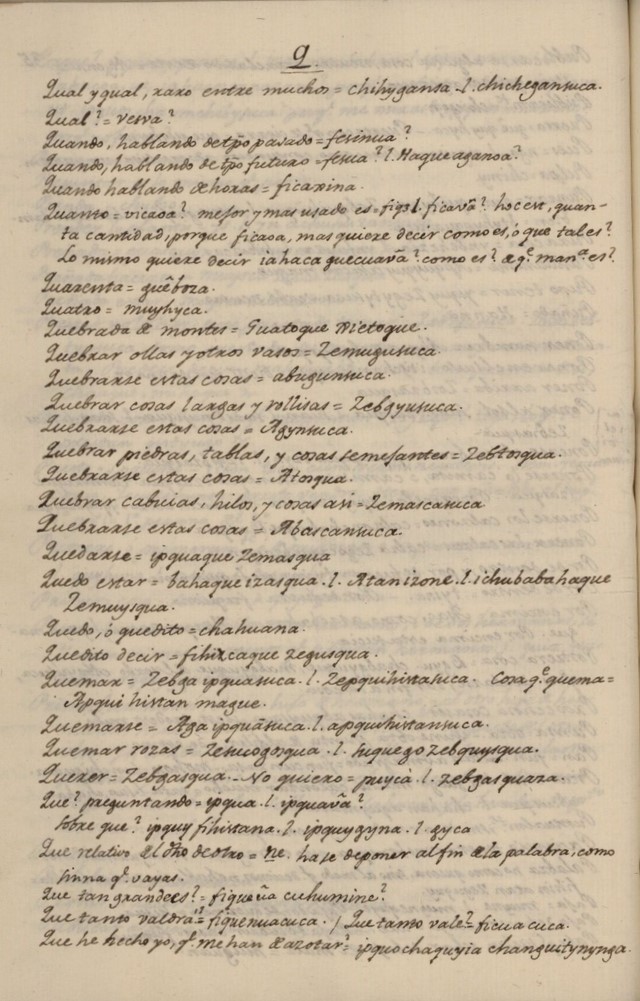 Q.
Qual y qual, raro entre muchos = chihygansa .l. chichegansuca.
Qual? = vesva?
Quando, hablando de tp̄o pasado = fesinua?
Quando, hablando de tp̄o futuro = fesua? l. Haqueaganoa?
Quando hablando de horas = ficaxina.
Quanto = vicaoa? mejor y mas usado es = figo l. ficavã? hoc est, quan-
ta cantidad, porque ficaoa, mas quiere decir como es, ò que tal es?
Lo mismo quiere decir iahaca guecuavã? como es? de q.e man.a es?
Quarenta = guêboza.
Quatro = muyhyca.
Quebrada de montes =
Quebrar ollas y otros vasos = Zemugusuca.
Quebrarse estas cosas = abugunsuca.
Quebrar cosas largas y rollisas = Zebgyusuca.
Quebrarse estas cosas = Agynsuca.
Quebrar piedras, tablas, y cosas semejantes = Zebtosqua.
Quebrarse estas cosas = Atosqua.
Quebrar cabuias, hilos, y cosas asi = Zemascasuca
Quebrarse estas cosas = Abascansuca.
Quedarse = ipquaque Zemasqua
Quedo estar = bahaque izasqua .l. Atanizone .l. ichubabahaque
Zemuysqua.
Quedo, ò quedito = chahuana.
Quedito decir = fihixcaque zegusqua.
Quemar = Zebga ipquasuca .l. Zepquihistasuca. Cosa q.e quema =
Apqui histan mague.
Quemarse = Aga ipquãsuca .l. apquihistansuca.
Quemar rozas = Zesuogosqua .l. suquego zebquysqua.
Querer = Zebgasqua. - No quiero = pleycà .l. zebgasquaza.
Que? preguntando = ipqua .l. ipquavã?
sobre que? ipquy fihistana .l. ipquygyna .l. gyca
Que relativo de l dh̃o de otro = ne. hase de poner al fin de la palabra, como
sinna q.e vayas.
Que tan grande es? = figue cuhumine?
Que tanto valdrà? = fiquenuacuca. / Que tanto vale? = ficuacuca.
Que he hecho yo, q.e me han de azotar? = ipquo chaquyia changuitynynga.